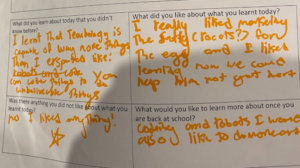 What did you learn about today that you didn't
know before?
I lernt that Teachology is
capable of way more things
than I expected like:
Robots and cute
can other things to do you
unbelievable things
What did you like about what you learnt today?
I really liked marketing
The safty (racets??) for
The egg and I liked
learning how we could
help him not get hurt
Was there anything you did not like about what you
learnt today?
no I liked anything!
What would you like to learn more about once you
are back at school?
codeing and robots I would
also like to do more